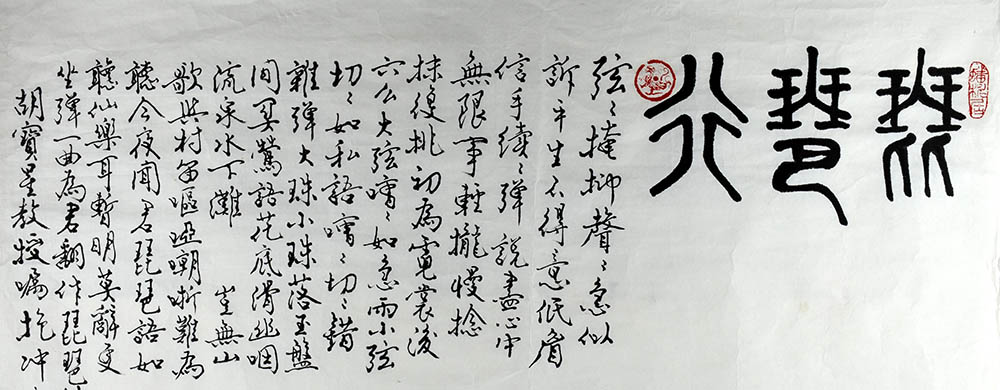 琵琶行
弦〻掩抑聲〻思似
訴平生不得意低眉
信手續〻彈說盡心中
無限事輕攏慢捻
抹復挑初為霓裳後
六么大弦嘈〻如急雨小弦
切〻如私語嘈〻切〻錯
雜彈大珠小珠落玉盤
间关鶯語花底滑幽咽
流泉水下灘 豈無山
歌與村笛嘔啞嘲哳難為
聽今夜聞君琵琶語如
聽仙樂耳暫明莫辭更
坐彈一曲為君翻作琵琶
胡寶星教授囑抱冲